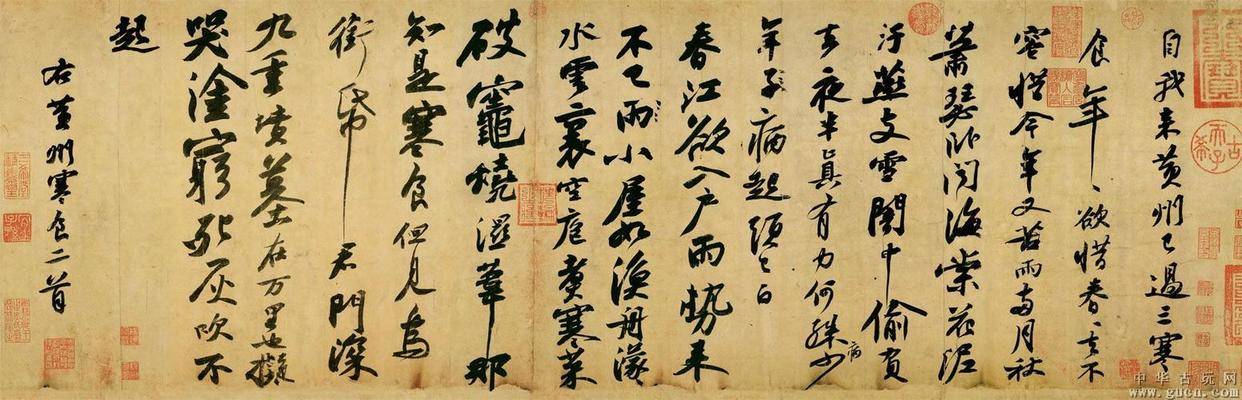 自我来黄州已過三寒
食年々欲惜春々去不
容惜今年又苦雨两月秋
蕭瑟卧聞海棠花泥
汙燕支雪闇中偷負
去夜半真有力何殊少
病
年子病起頭已白
春江欲入戶雨勢来
不已雨小屋如漁舟濛々
水雲裏空庖煮寒菜
破竈燒濕葦那
知是寒食但見烏
銜帋君門深
九重墳墓在万里也擬
哭塗窮死灰吹不
起
右黄州寒食二首
古希天子
中华古玩网
www.gucn.com